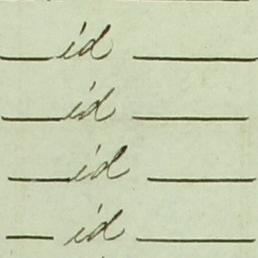 — id —
— id —
— id —
— id —